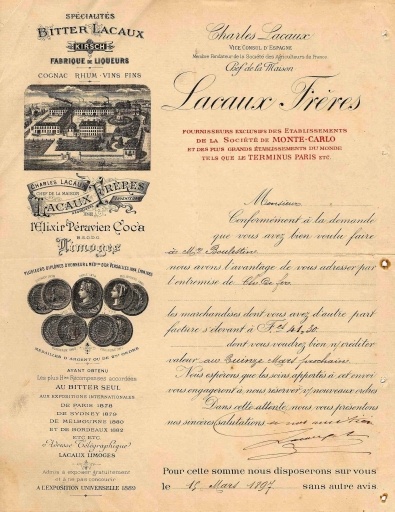 SPÉCIALITÉS
BITTER LACAUX
KIRSCH
FABRIQUE DE LIQUEURS
COGNAC RHUM·VINS FINS
CHARLES LACAUX
CHEF DE LA MAISON
LACAUX FRÈRES
l'Elixir Péruvien Coca
Limoges
MÉDAILLES D'ARGENT OU DE 2ME ORDRE
AYANT OBTENU
Les plus Htes Récompenses accordées
AU BITTER SEUL
AUX EXPOSITIONS INTERNATIONALES
DE PARIS 1878
DE SYDNEY 1879
DE MELBOURNE 1880
ET DE BORDEAUX 1882
ETC. ETC.
Adresse Télégraphique
LACAUX LIMOGES
Admis à exposer gratuitement
et à ne pas concourir
A L'EXPOSITION UNIVERSELLE 1889
Charles Lacaux
VICE CONSUL D'ESPAGNE
Membre Fondateur de la Société des Agriculteurs de France
Chef de la Maison
Lacaux Frères
FOURNISSEURS EXCLUSIFS DES ÉTABLISSEMENTS
DE LA SOCIÉTÉ DE MONTE-CARLO
ET DES PLUS GRANDS ÉTABLISSEMENTS DU MONDE
TELS QUE LE TERMINUS PARIS ETC.
Monsieur
Conformément à la demande
que vous avez bien voulu faire
à Mr
nous avons l'avantage de vous adresser par
l'entremise de Ch. De fer
les marchandises dont vous avez d'autre part
facture s'élevant à Fcs 41,50
dont vous voudrez bien n/créditer
valeur au Quinze Mars prochain
Nous espérons que les soins apportés à cet envoi
vous engageront à nous réserver v/nouveaux ordres
Dans cette attente, nous vous présentons
nos sincères salutations
Pour cette somme nous disposerons sur vous
le 15 Mars 1897 sans autre avis